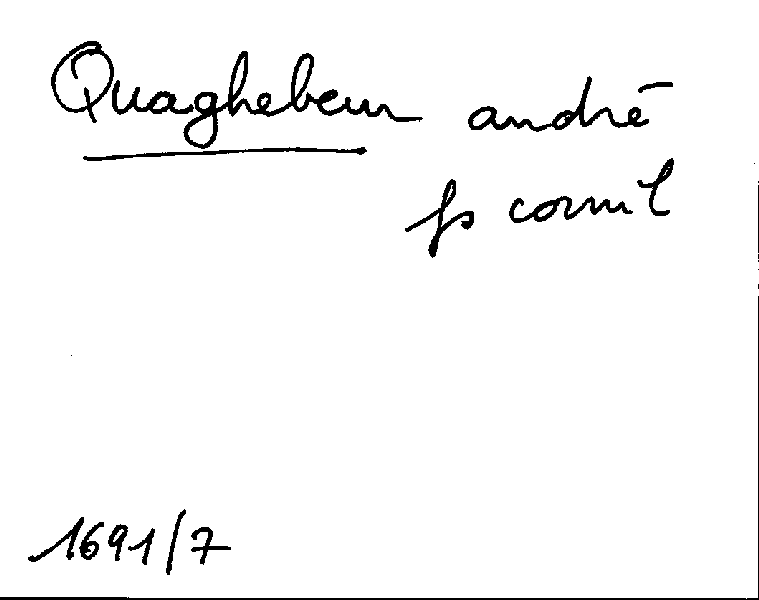 Quaghebeur andré
fs cornil
1691/7